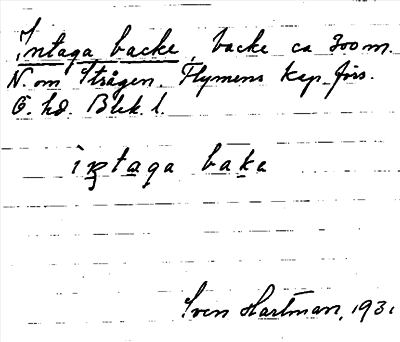 Intaga backe, backe ca 300 m.
N. om Strågen, Flymens kap. förs.
Ö. hd. Blek. l.
intaga baka
Sven Hartman, 1931